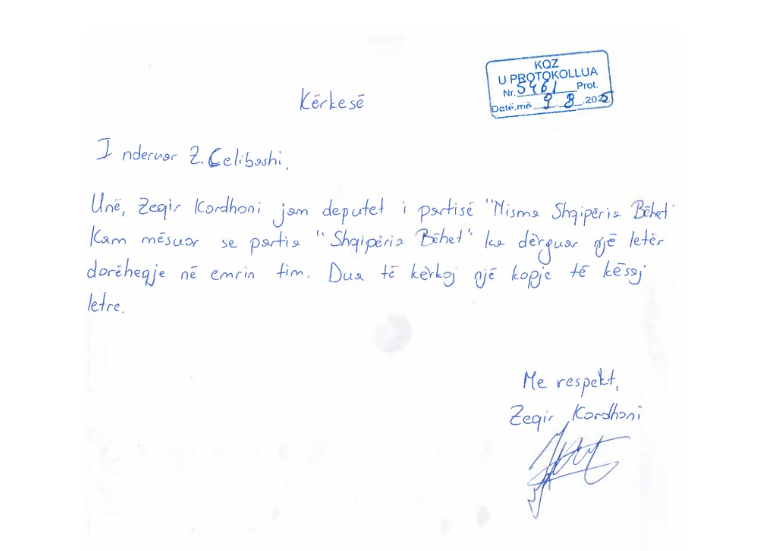 KQZ
U PROTOKOLLUA
Nr. 5461 Prot.
Datë.më 9 8 .2025
Kërkesë
I nderuar Z. Celibashi,
Unë, Zeqir Kordhoni jam deputet i partisë "Nisma Shqipëria Bëhet"
Kam mësuar se partia "Shqipëria Bëhet" ka dërguar një letër
dorëheqje në emrin tim. Dua të kërkoj një kopje të kësaj
letre.
Me respekt,
Zeqir Kordhoni